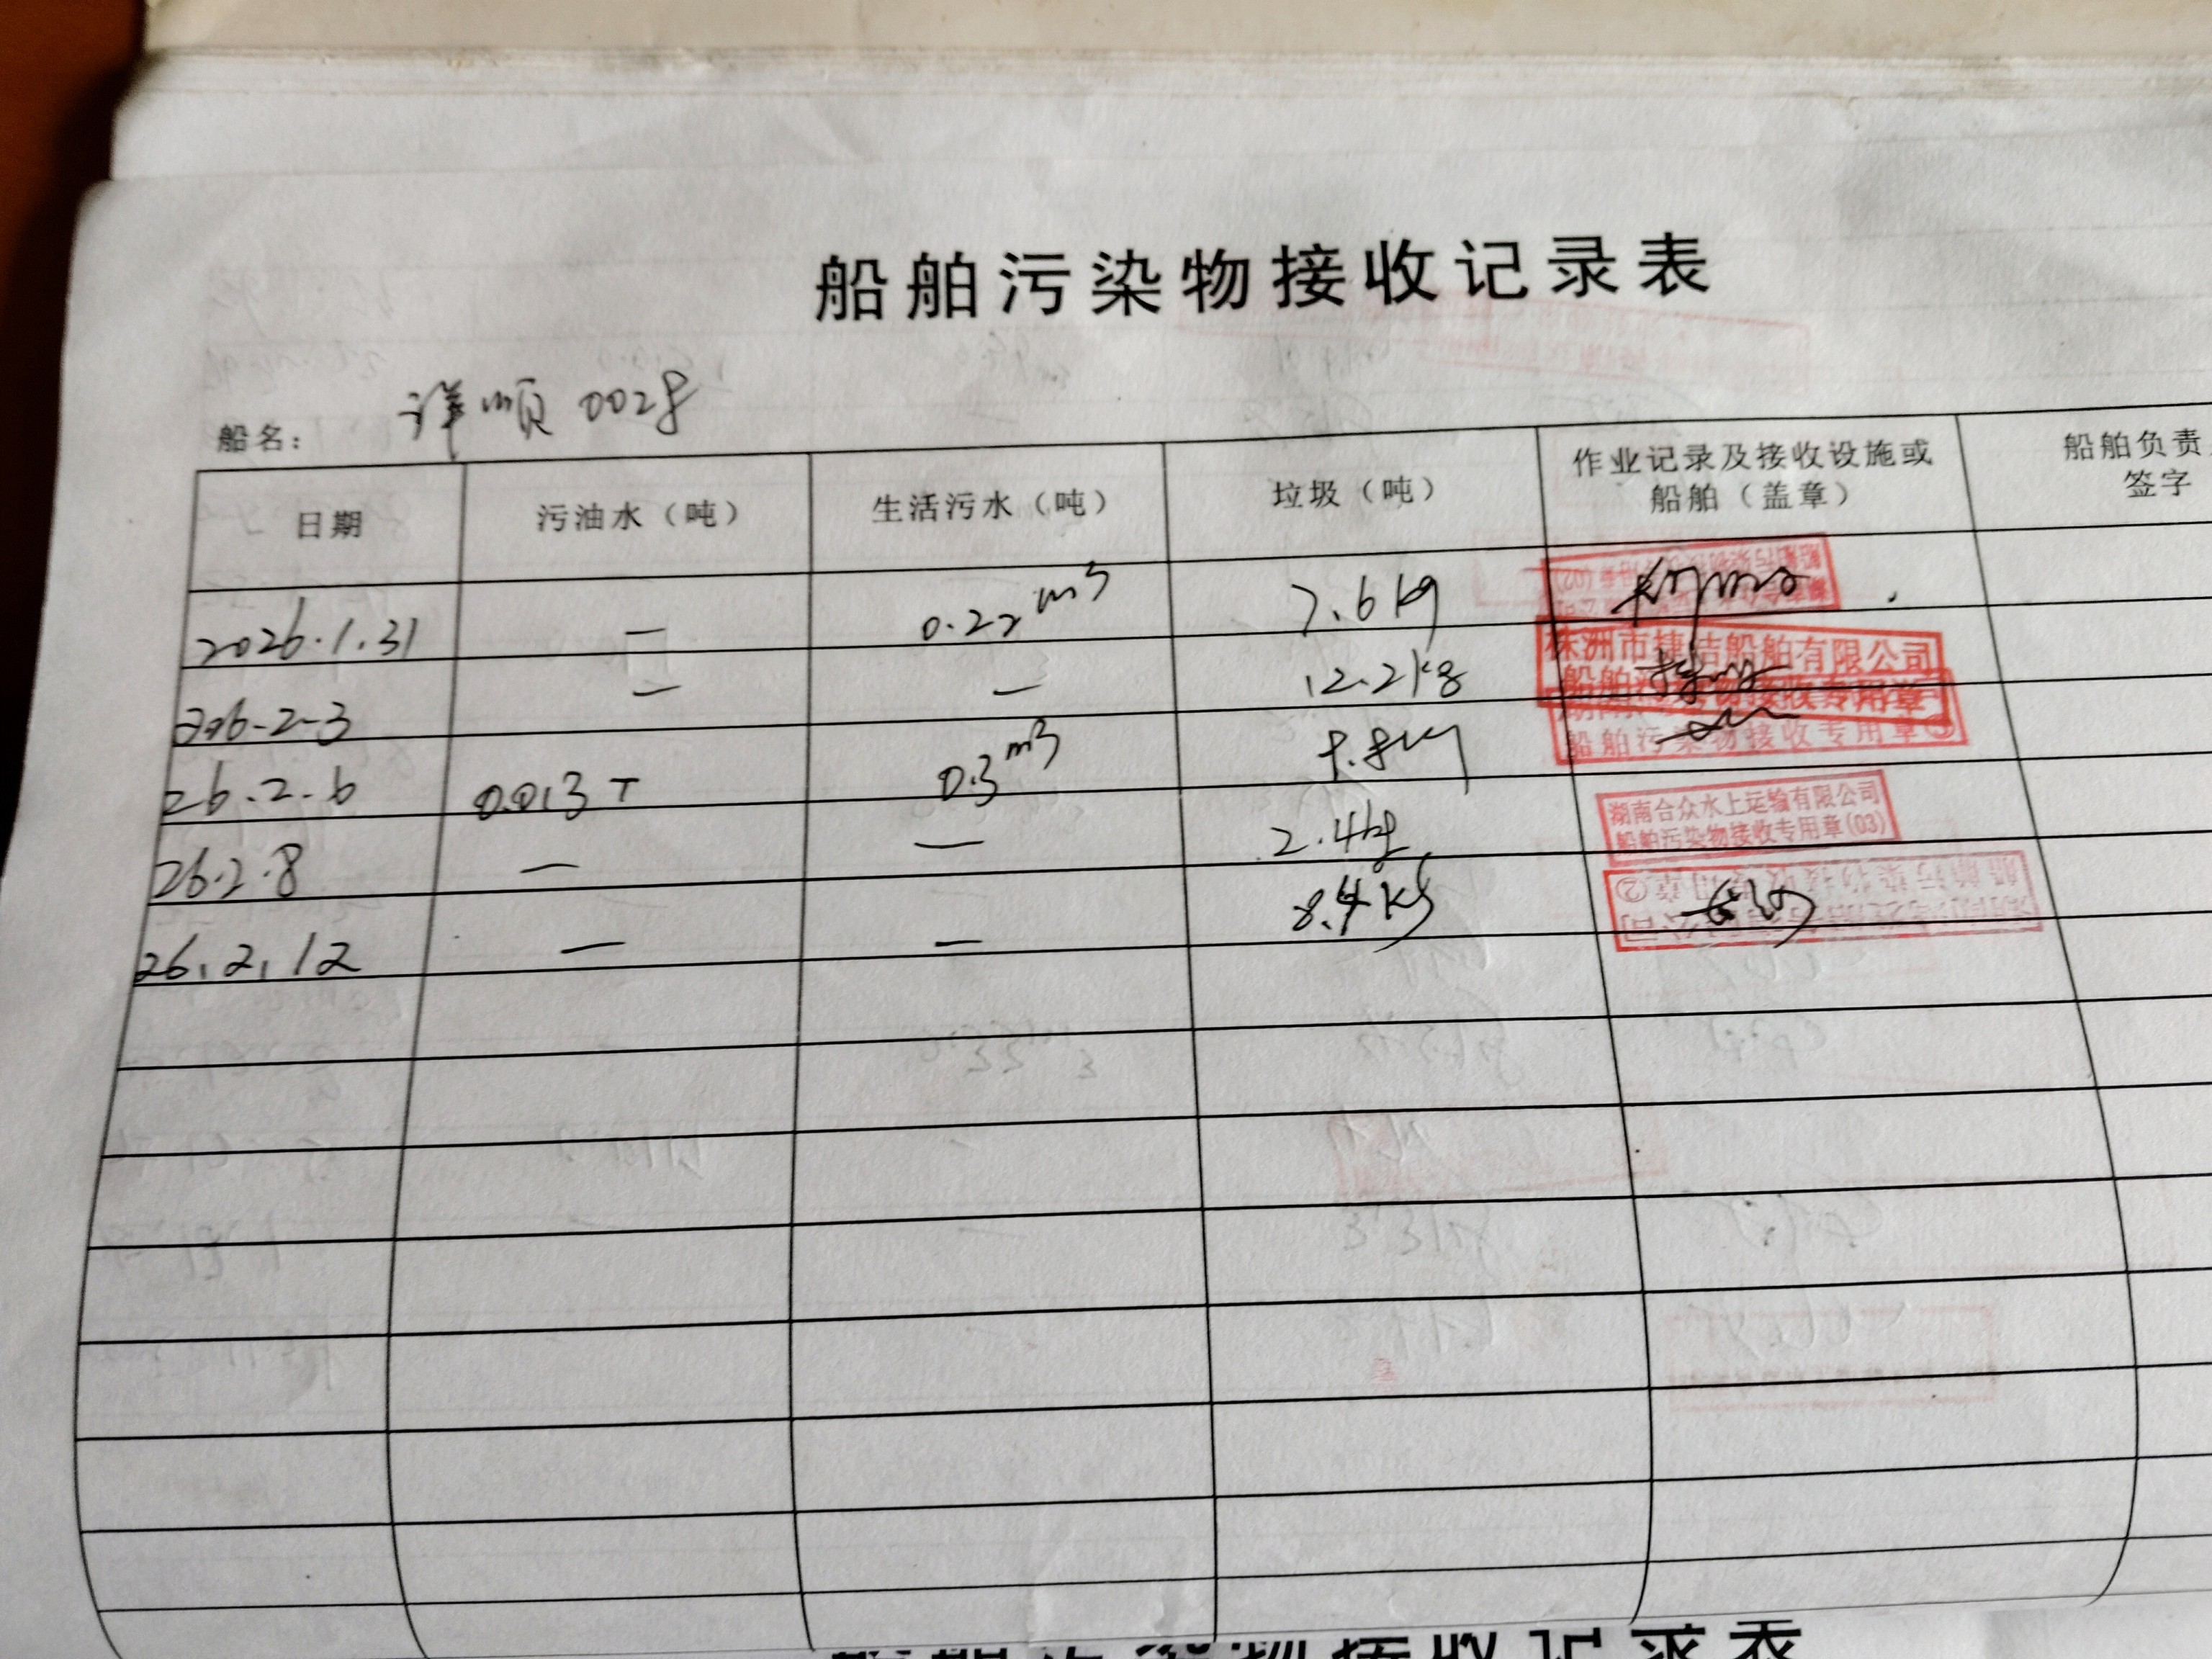 船舶污染物接收记录表
船名: 祥顺 0028
日期 污油水（吨） 生活污水（吨） 垃圾（吨） 作业记录及接收设施或船舶（盖章） 船舶负责 签字
2026.1.31 — 0.22 m³ 7.6 kg
2026-2-3 — — 12.2 kg 株洲市捷洁船舶有限公司
26.2.6 0.013 T 0.3 m³ 8.8 kg 船舶污染物接收专用章
26.2.8 — — 2.4 kg 湖南合众水上运输有限公司
船舶污染物接收专用章(03)
26.2.12 — — 8.4 kg
船舶污染物接收记录表